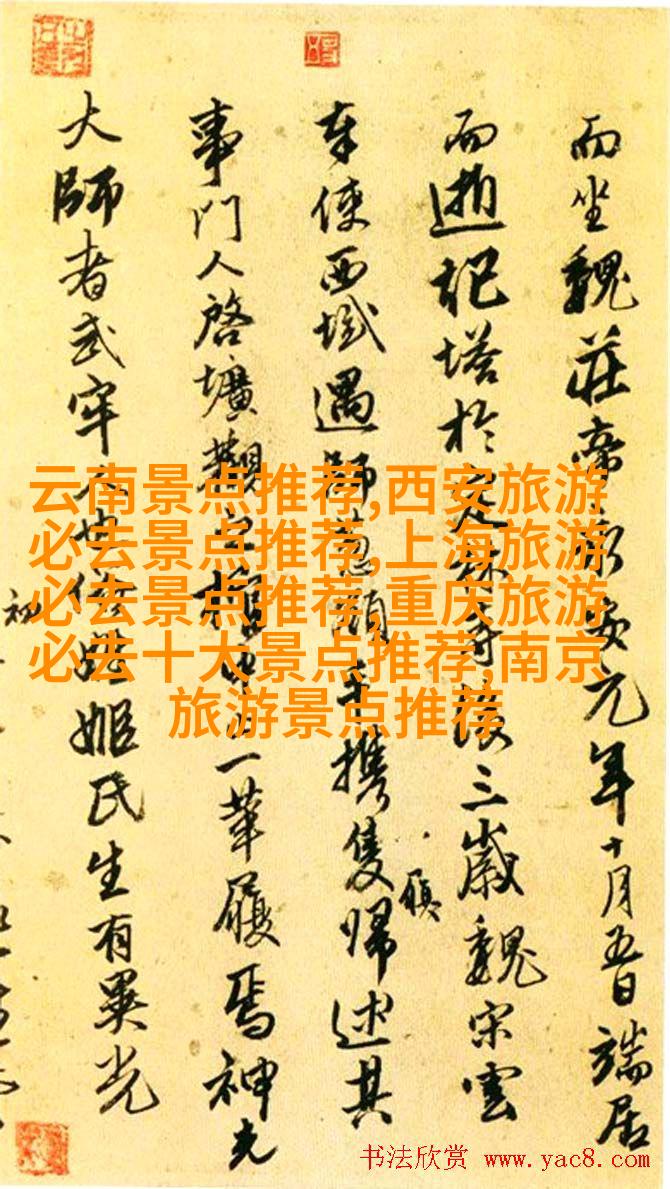 而坐魏莊帝永安元年十月五日端居
而逝祀塔於定林寺後三歲魏宋雲
奉使西域遇師葱嶺手攜隻歸述其
履
事門人啓壙觀之棺中止一革履焉神光
大師者武牢人也俗姓姬氏生有異光
初
云南景点推荐,西安旅游
必去景点推荐,上海旅游
必去景点推荐,重庆旅游
必去十大景点推荐,南京
旅游景点推荐
书法欣赏 www.yac8.com